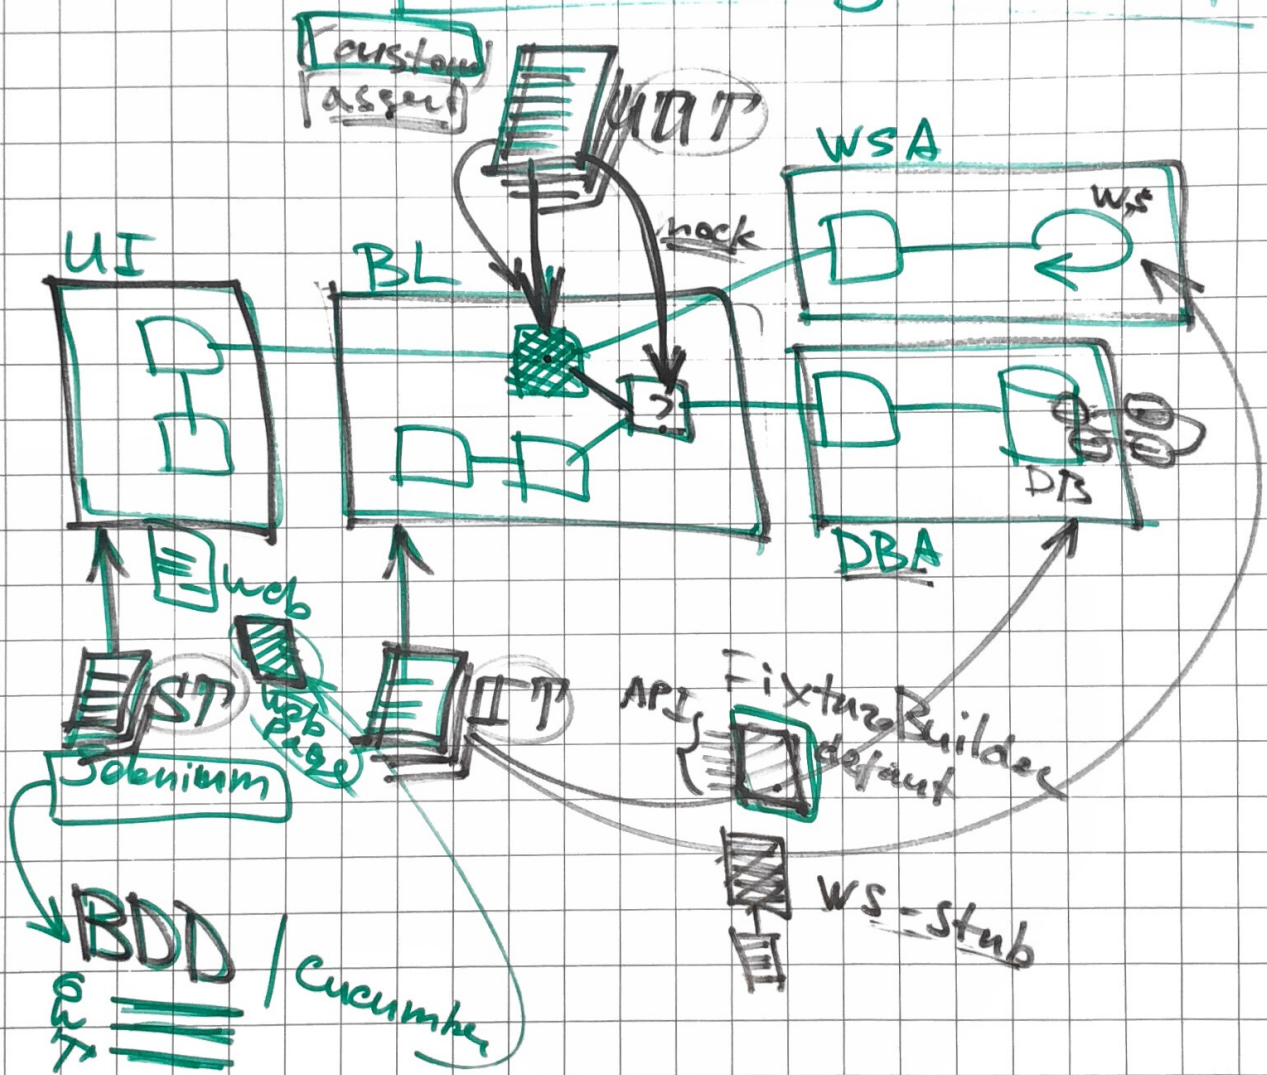 custom
assert
UIT
WSA
WS
mock
UI
BL
?
DB
DBA
web
ST
web
page
IT
API
FixtureBuilder
default
Selenium
WS-stub
BDD
/ Cucumber
G
W
T